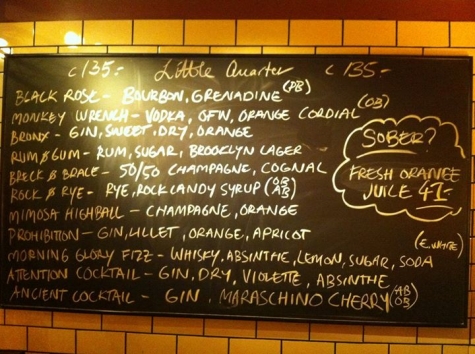 c 135:- Little Quarter c 135:-
BLACK ROSE - BOURBON, GRENADINE (PB)
MONKEY WRENCH - VODKA, GFN, ORANGE CORDIAL (OB)
BRONX - GIN, SWEET, DRY, ORANGE
RUM & GUM - RUM, SUGAR, BROOKLYN LAGER
BRECK & BRACE - 50/50 CHAMPAGNE, COGNAC
ROCK & RYE - RYE, ROCK CANDY SYRUP (OB AB)
MIMOSA HIGHBALL - CHAMPAGNE, ORANGE
PROHIBITION - GIN, LILLET, ORANGE, APRICOT
MORNING GLORY FIZZ - WHISKY, ABSINTHE, LEMON, SUGAR, SODA (E.WHITE)
ATTENTION COCKTAIL - GIN, DRY, VIOLETTE, ABSINTHE
ANCIENT COCKTAIL - GIN, MARASCHINO CHERRY (AB OB)
SOBER?
FRESH ORANGE
JUICE 41:-